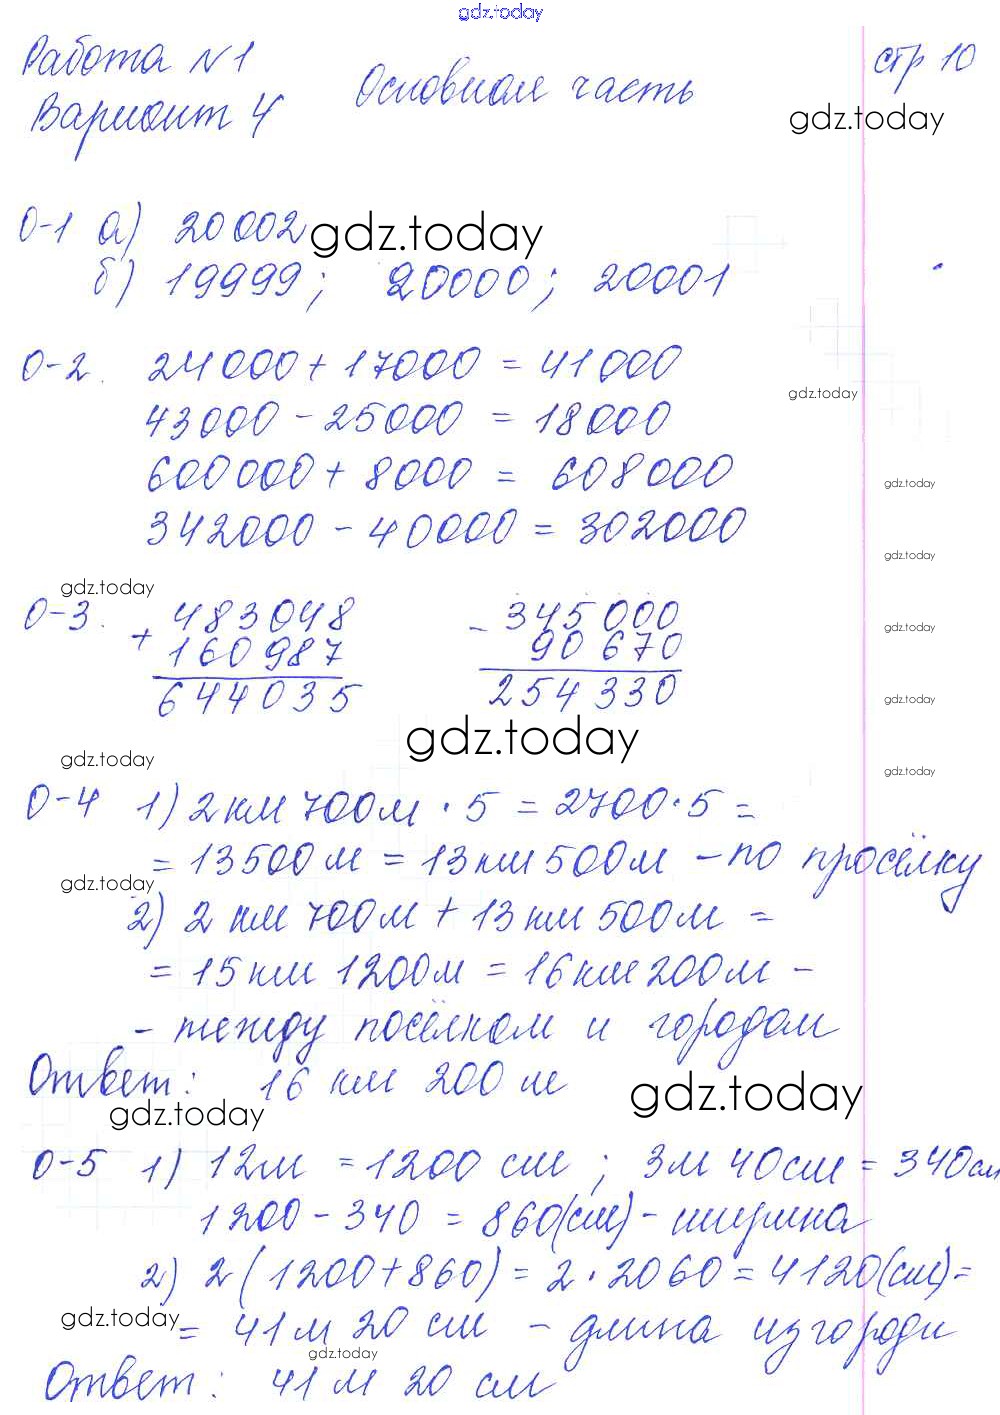 gdz.today
Работа №1 стр 10
Вариант 4 Основная часть
gdz.today
О-1 а) 20 002
gdz.today
б) 19999; 20000; 20001
О-2. 24 000 + 17000 = 41 000
gdz.today
43 000 - 25 000 = 18 000
600 000 + 8000 = 608 000
gdz.today
342000 - 40000 = 302000
gdz.today
gdz.today
О-3. + 483048 - 345 000
gdz.today
160 987 90 670
644035 254 330
gdz.today
gdz.today
gdz.today
gdz.today
О-4 1) 2 км 700 м · 5 = 2700 · 5 =
= 13500 м = 13 км 500 м - по просёлку
gdz.today
2) 2 км 700 м + 13 км 500 м =
= 15 км 1200 м = 16 км 200 м -
- между посёлком и городом
Ответ: 16 км 200 м
gdz.today
gdz.today
О-5 1) 12 м = 1200 см ; 3 м 40 см = 340 см
1200 - 340 = 860 (см) - ширина
2) 2 (1200 + 860) = 2 · 2060 = 4120 (см) =
gdz.today
= 41 м 20 см - длина изгороди
gdz.today
Ответ: 41 м 20 см